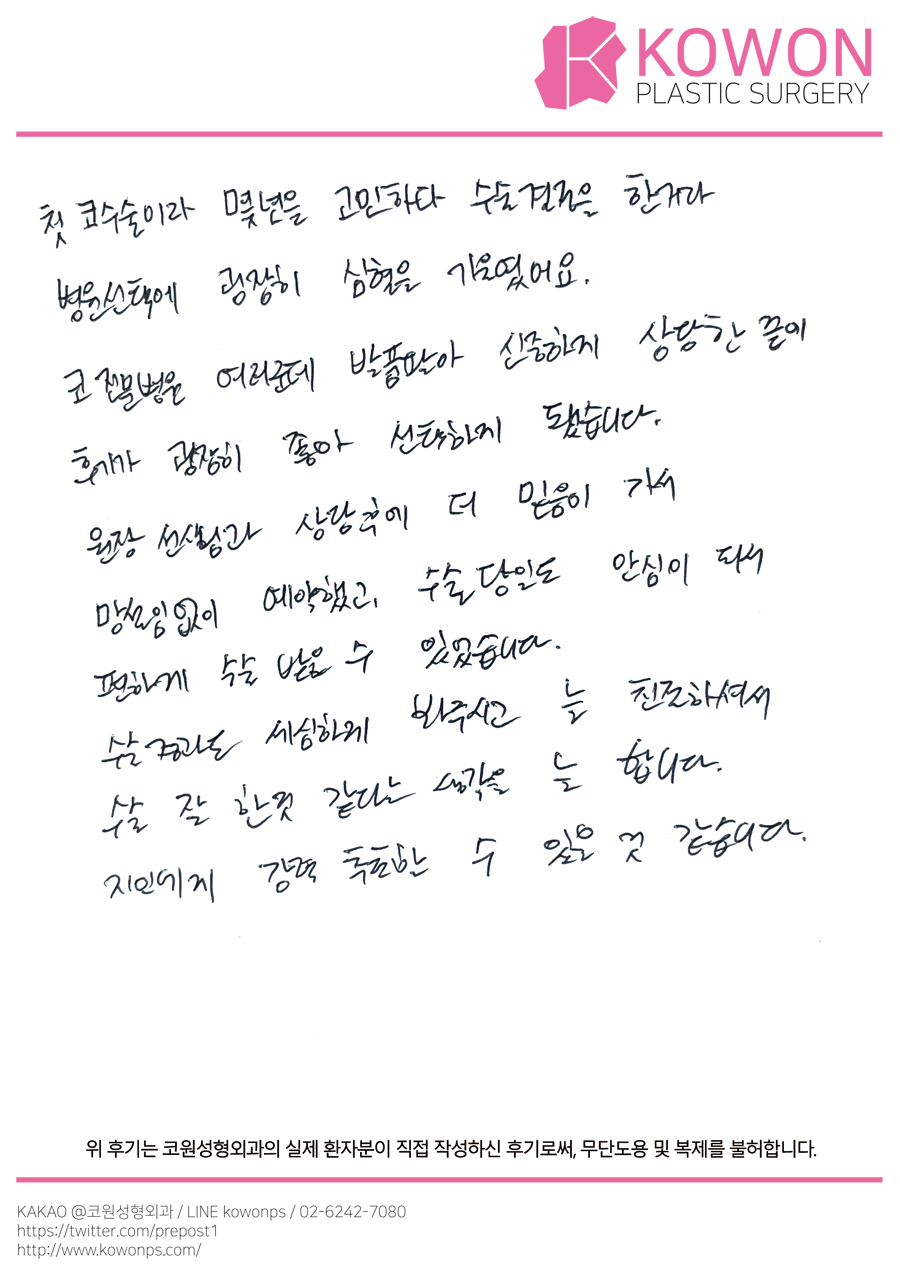 KOWON
PLASTIC SURGERY
첫 코수술이라 몇년을 고민하다 수술결정을 한거라
병원선택에 굉장히 심혈을 기울였어요.
코 전문병원 여러군데 발품팔아 신중하게 상담한 끝에
후기가 굉장히 좋아 선택하게 됐습니다.
원장 선생님과 상담후에 더 믿음이 가서
망설임없이 예약했고, 수술당일도 안심이 되서
편하게 수술 받을 수 있었습니다.
수술경과도 세심하게 봐주시고 늘 친절하셔서
수술 잘 한것 같다는 생각을 늘 합니다.
지인에게 강력 추천할 수 있을 것 같습니다.
위 후기는 코원성형외과의 실제 환자분이 직접 작성하신 후기로써, 무단도용 및 복제를 불허합니다.
KAKAO @코원성형외과 / LINE kowonps / 02-6242-7080
https://twitter.com/prepost1
http://www.kowonps.com/